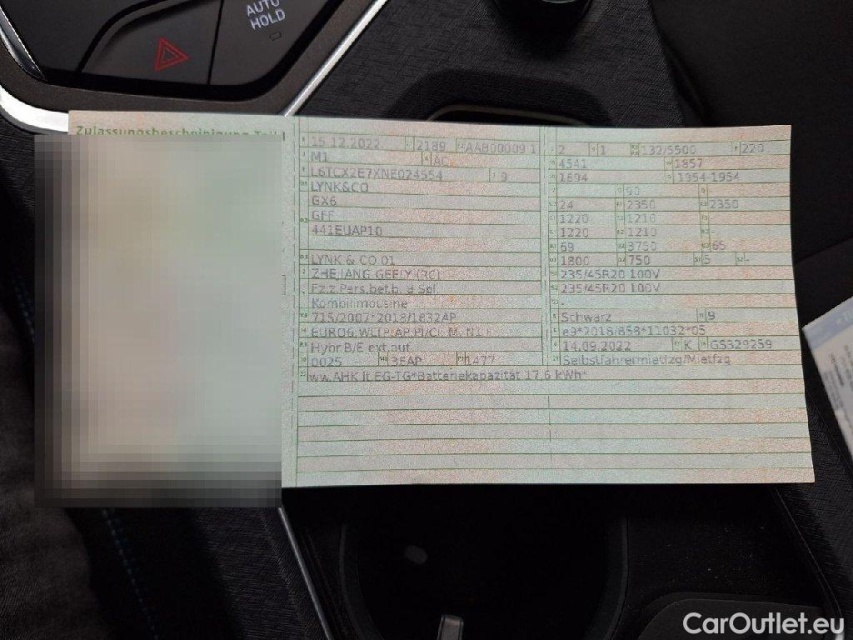 AUTO
HOLD
Zulassungsbescheinigung Teil I
15.12.2022 2189 AAB00009 1
M1 AC
L6TCX2E7XNE024554 9
LYNK&CO
GX6
GFF
441EUAP10
LYNK & CO 01
ZHEJIANG GEELY (RC)
Fz.z.Pers.bef.b. 8 Spl.
Kombilimousine
715/2007*2018/1832AP
EURO6,WLTP,AP,PI/CI, M, N1 I
Hybr.B/E ext.auf.
0025 3EAP 1477
ww.AHK lt.EG-TG*Batteriekapazität 17,6 kWh*
2 1 132/5500 220
4541 1857
1694 1954-1954
- 90 -
24 2350 2350
1220 1210 -
1220 1210 -
69 3750 65
1800 750 5 -
235/45R20 100V
235/45R20 100V
-
Schwarz 9
e9*2018/858*11032*05
14.09.2022 K GS329259
Selbstfahrermietfzg/Mietfzg
CarOutlet.eu